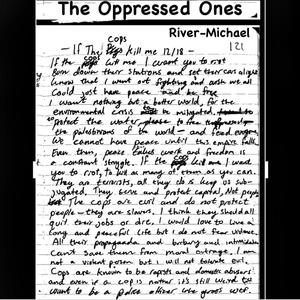 The Oppressed Ones
River-Michael
121
cops
— If The kill me 12/18 —
If the cops kill me I want you to riot
Burn down their stations and set their cars alight
Know that I went out fighting and wish we all
could just have peace and be free
I want nothing but a better world, for the
environmental crisis to be mitigated,
protect the water to free
the palestinians of the world — and feed everyone
We cannot have peace until this empire falls
Even then, peace work and freedom is
a constant struggle. If the cops kill me I want
you to riot, to kill as many of them as you can.
They are terrorists, all they do is keep us sub-
jugated. They serve and protect capital, not people
The cops are evil and do not protect
people — they are slavers. I think they should all
quit their jobs or die. I would love to live a
long and peaceful life but I do not fear violence.
All their propaganda and and intimidation
can't save them from moral outrage, I am
not a violent person but I will not tolerate evil.
Cops are known to be rapists and domestic abusers
and even if a cop is not it's still weird to
want to be a police officer like gross